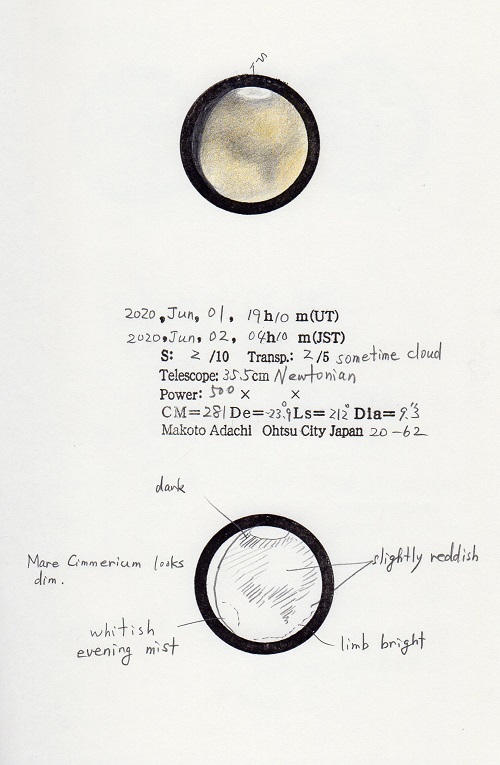 S
2020, Jun, 01, 19h10 m(UT)
2020, Jun, 02, 04h10 m(JST)
S: 2 /10 Transp.: 2/5 sometime cloud
Telescope: 35.5cm Newtonian
Power: 500 × ×
CM=281 De=-23.9° Ls=212° Dia=9."3
Makoto Adachi Ohtsu City Japan 20-62
dark
Mare Cimmerium looks
dim.
slightly reddish
whitish
evening mist
limb bright